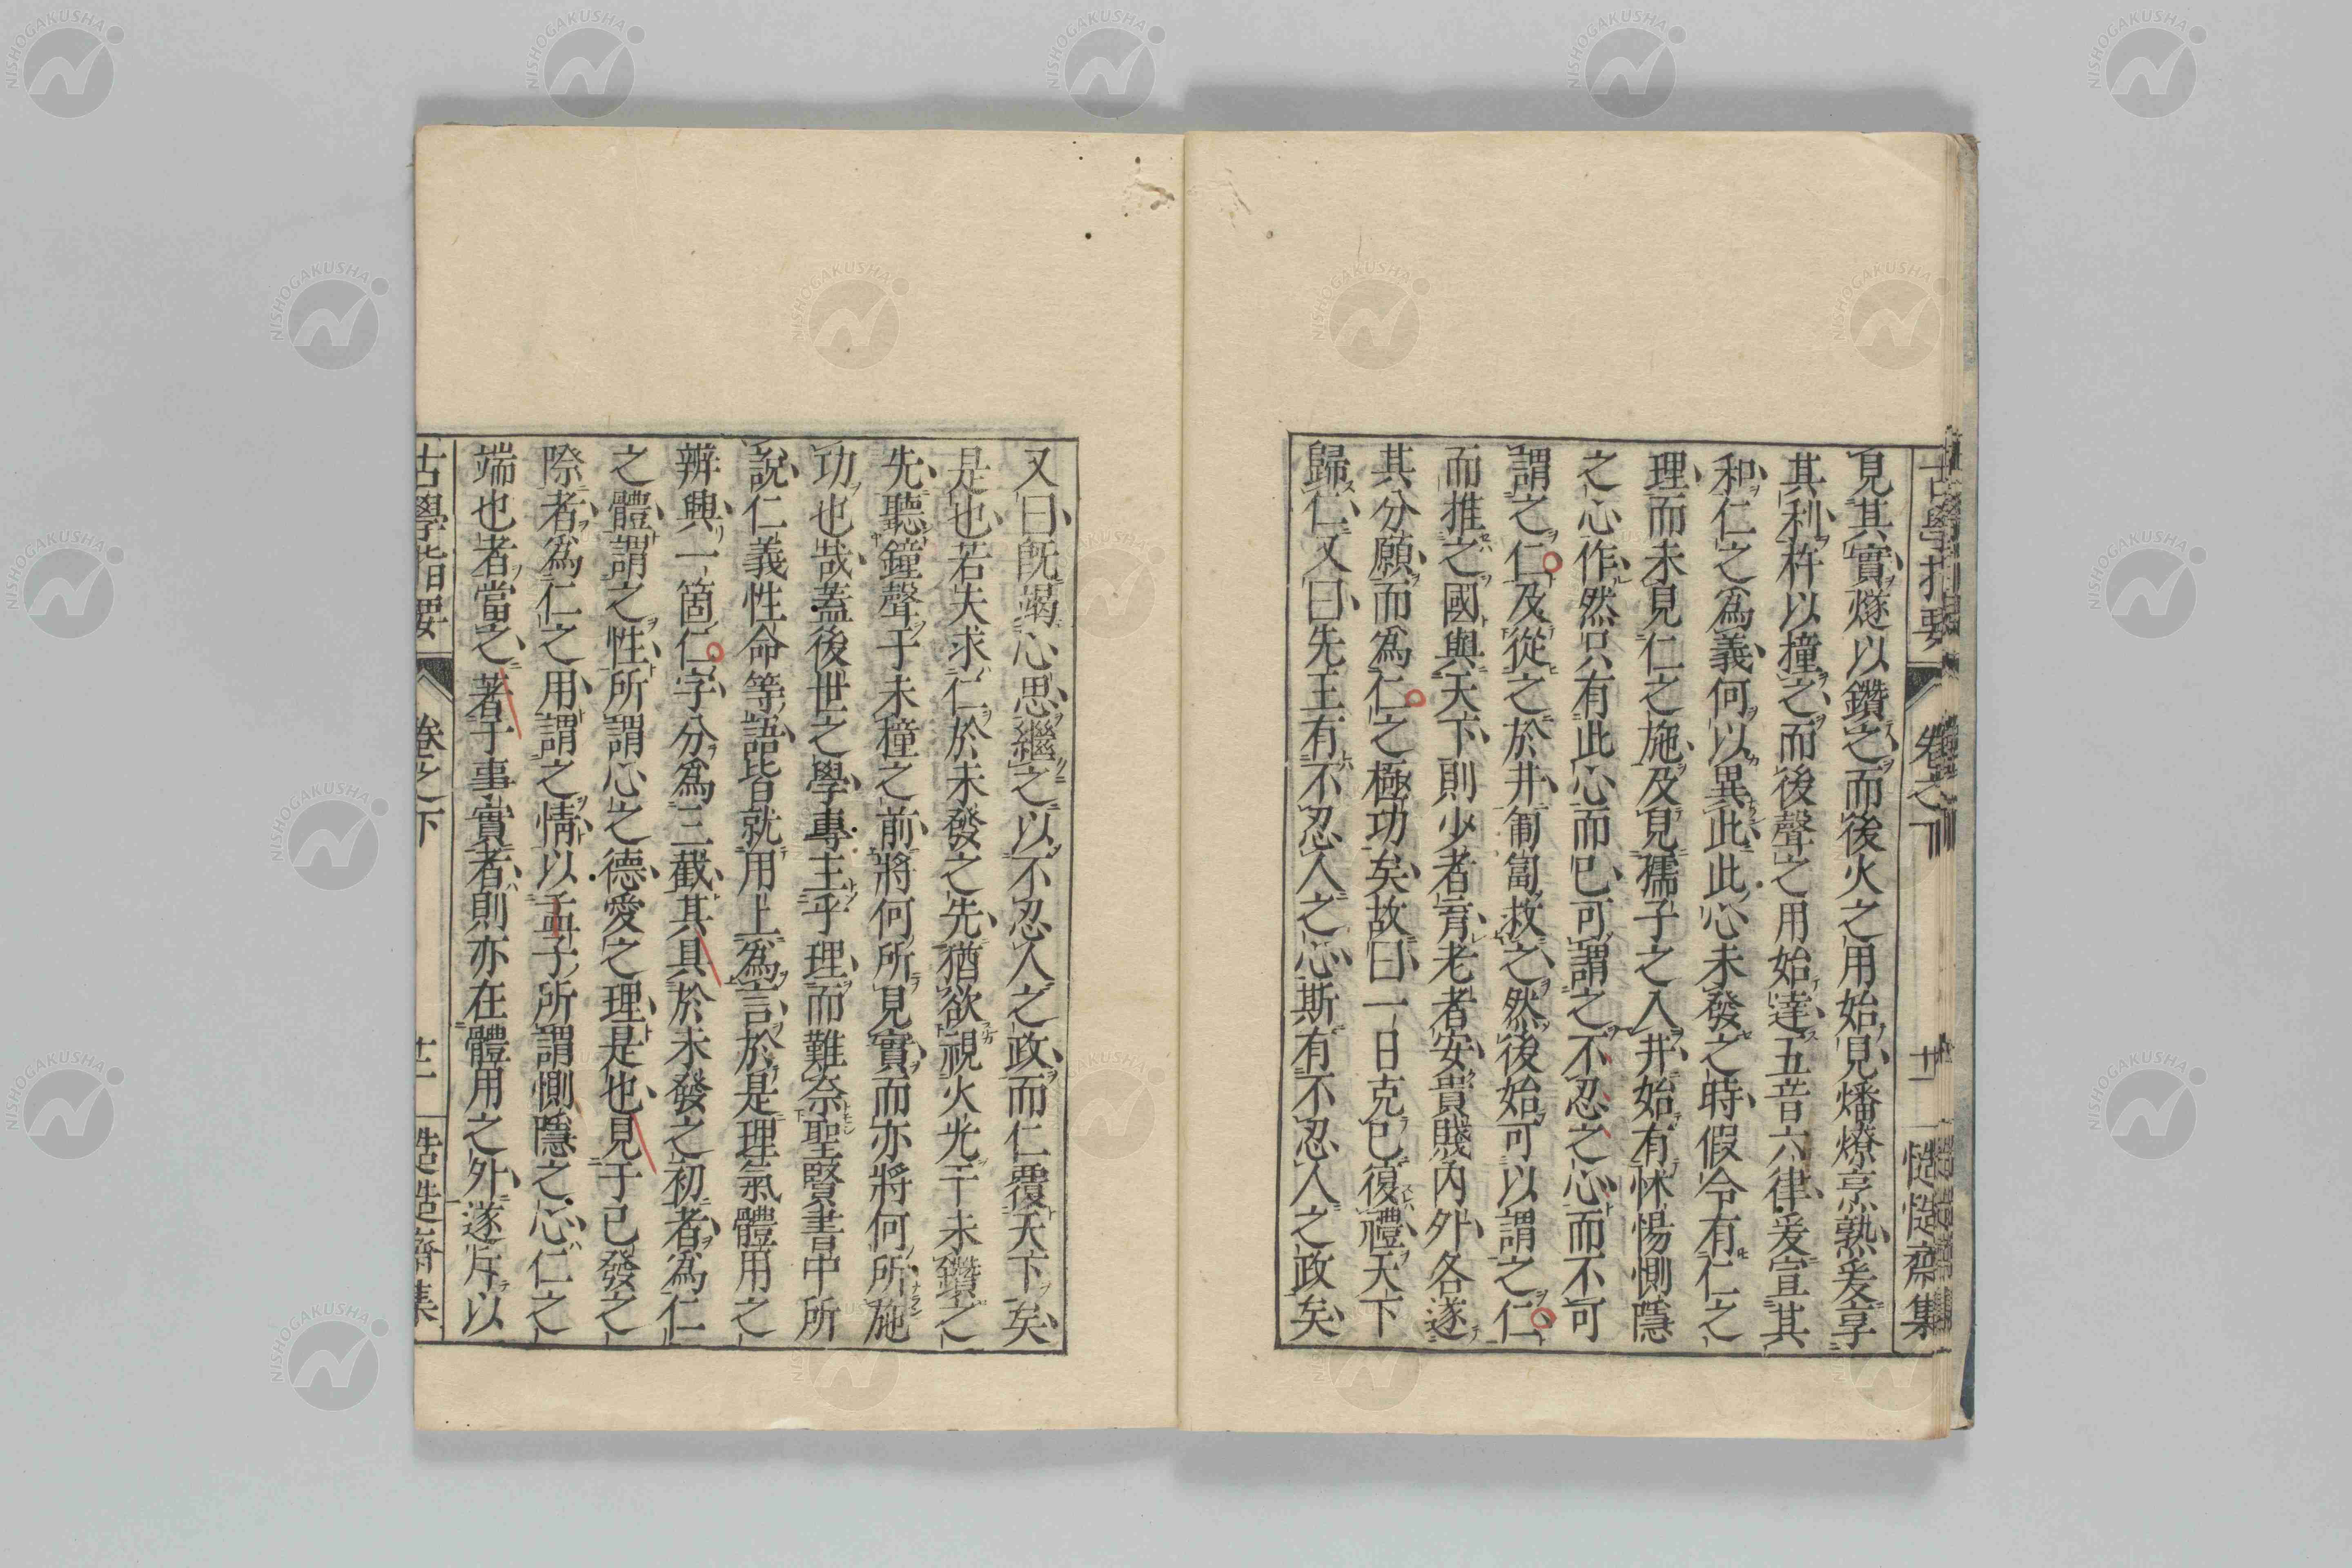 見其實燧以鑽之而後火之用始見燔燎烹熟爰享
其利杵以撞之而後聲之用始達五音六律爰宣其
和仁之為義何以異此此心未發之時假令有仁之
理而未見仁之施及見孺子之入井始有怵惕惻隱
之心作然只有此心而已可謂之不忍之心而不可
謂之仁及從之於井匍匐救之然後始可以謂之仁
而推之國與天下則少者育老者安貴賤內外各遂
其分願而為仁之極功矣故曰一日克己復禮天下
歸仁又曰先王有不忍人之心斯有不忍人之政矣
又曰既竭心思繼之以不忍人之政而仁覆天下矣
是也若夫求仁於未發之先猶欲視火光于未鑽之
先聽鐘聲于未撞之前將何所見實而亦將何所施
功也哉蓋後世之學專主乎理而難奈聖賢書中所
說仁義性命等語皆就用上為言於是理氣體用之
辨興一箇仁字分為三截其具於未發之初者為仁
之體謂之性所謂心之德愛之理是也見于已發之
際者為仁之用謂之情以孟子所謂惻隱之心仁之
端也者當之著于事實者則亦在體用之外遂斥以
古學指要 卷之下